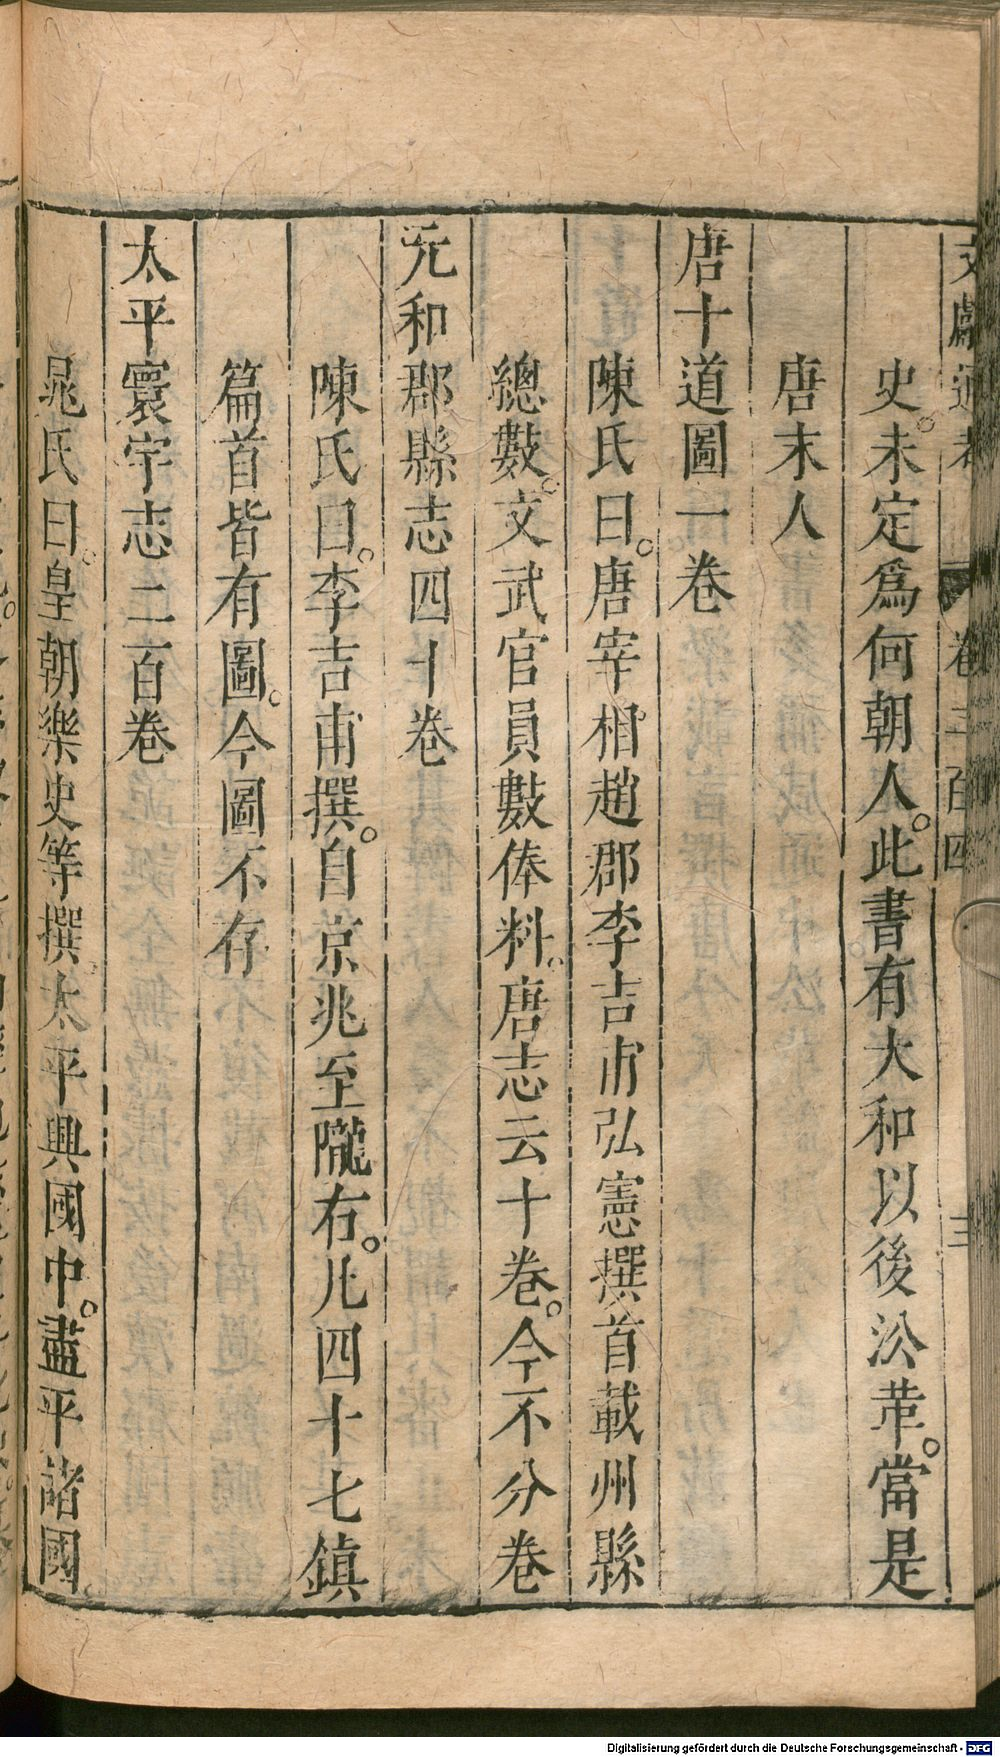 文獻通考 卷二百四 三
史未定爲何朝人。此書有大和以後沿革。當是
唐末人
唐十道圖一卷
陳氏曰。唐宰相趙郡李吉甫弘憲撰首載州縣
總數。文武官員數俸料。唐志云十卷。今不分卷
元和郡縣志四十卷
陳氏曰。李吉甫撰。自京兆至隴右。凡四十七鎮
篇首皆有圖。今圖不存
太平寰宇志二百卷
晁氏曰。皇朝樂史等撰。太平興國中。盡平諸國
Digitalisierung gefördert durch die Deutsche Forschungsgemeinschaft - DFG